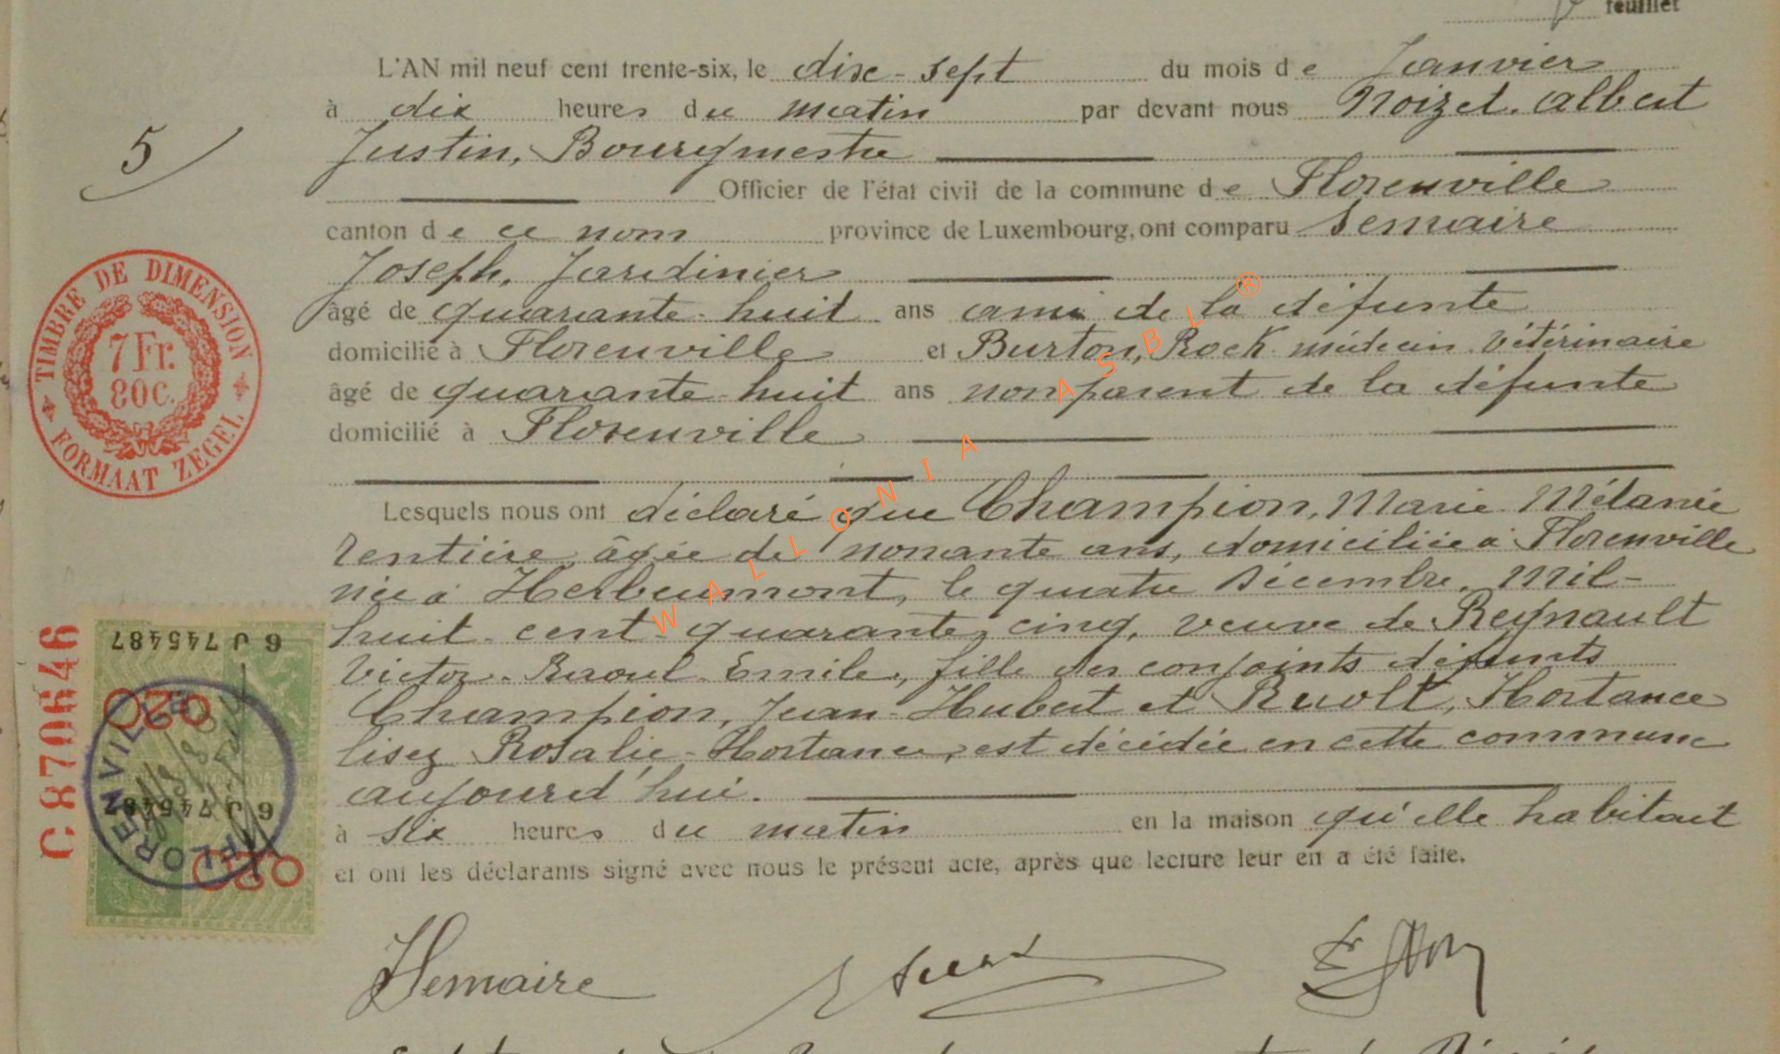 feuillet
L'AN mil neuf cent trente-six, le dix-sept du mois de Janvier
à dix heures du matin par devant nous Noizet. Albert
Justin, Bourgmestre
Officier de l'état civil de la commune de Florenville
canton de ce nom province de Luxembourg, ont comparu Semaire
Joseph, Jardinier
âgé de quarante-huit ans ami de la défunte
domicilié à Florenville et Burton, Rock médecin vétérinaire
âgé de quarante-huit ans non parent de la défunte
domicilié à Florenville
Lesquels nous ont déclaré que Champion, Marie Mélanie
rentière, âgée de nonante ans, domiciliée à Florenville
née à Herbeumont, le quatre décembre, mil-
huit-cent-quarante-cinq, veuve de Reynault
Victor-Raoul-Emile, fille des conjoints défunts
Champion, Jean-Hubert et Ruolt, Hortance
lisez Rosalie-Hortance, est décédée en cette commune
aujourd'hui.
à six heures du matin en la maison qu'elle habitait
et ont les déclarants signé avec nous le présent acte, après que lecture leur en a été faite.
JSemaire
5
TIMBRE DE DIMENSION
7 Fr.
80 C.
FORMAAT ZEGEL
C870646
6 J 745487
020
FLORENVILLE
6 J 745487
020
WALLONIA ASBL ®